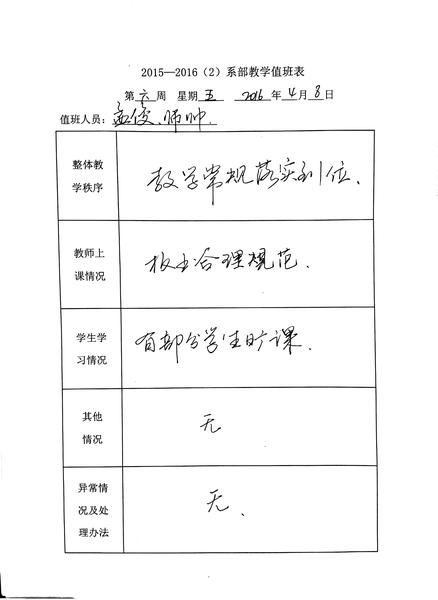 2015—2016（2）系部教学值班表
第 六 周 星期 五 2016 年 4 月 8 日
值班人员：孟俊、师帅.
整体教
学秩序
教学常规落实到位.
教师上
课情况
板书合理规范.
学生学
习情况
有部分学生旷课.
其他
情况
无
异常情
况及处
理办法
无.